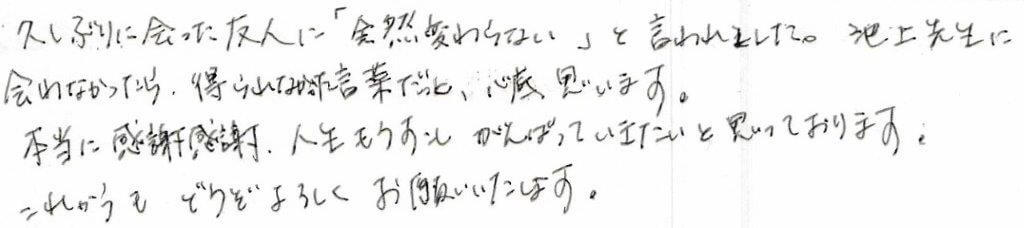 久しぶりに会った友人に「全然変わらない」と言われました。池上先生に
会わなかったら、得られなかった言葉だと、心底思います。
本当に感謝感謝、人生もうすこしがんばっていきたいと思っております。
これからもどうぞよろしくお願いいたします。